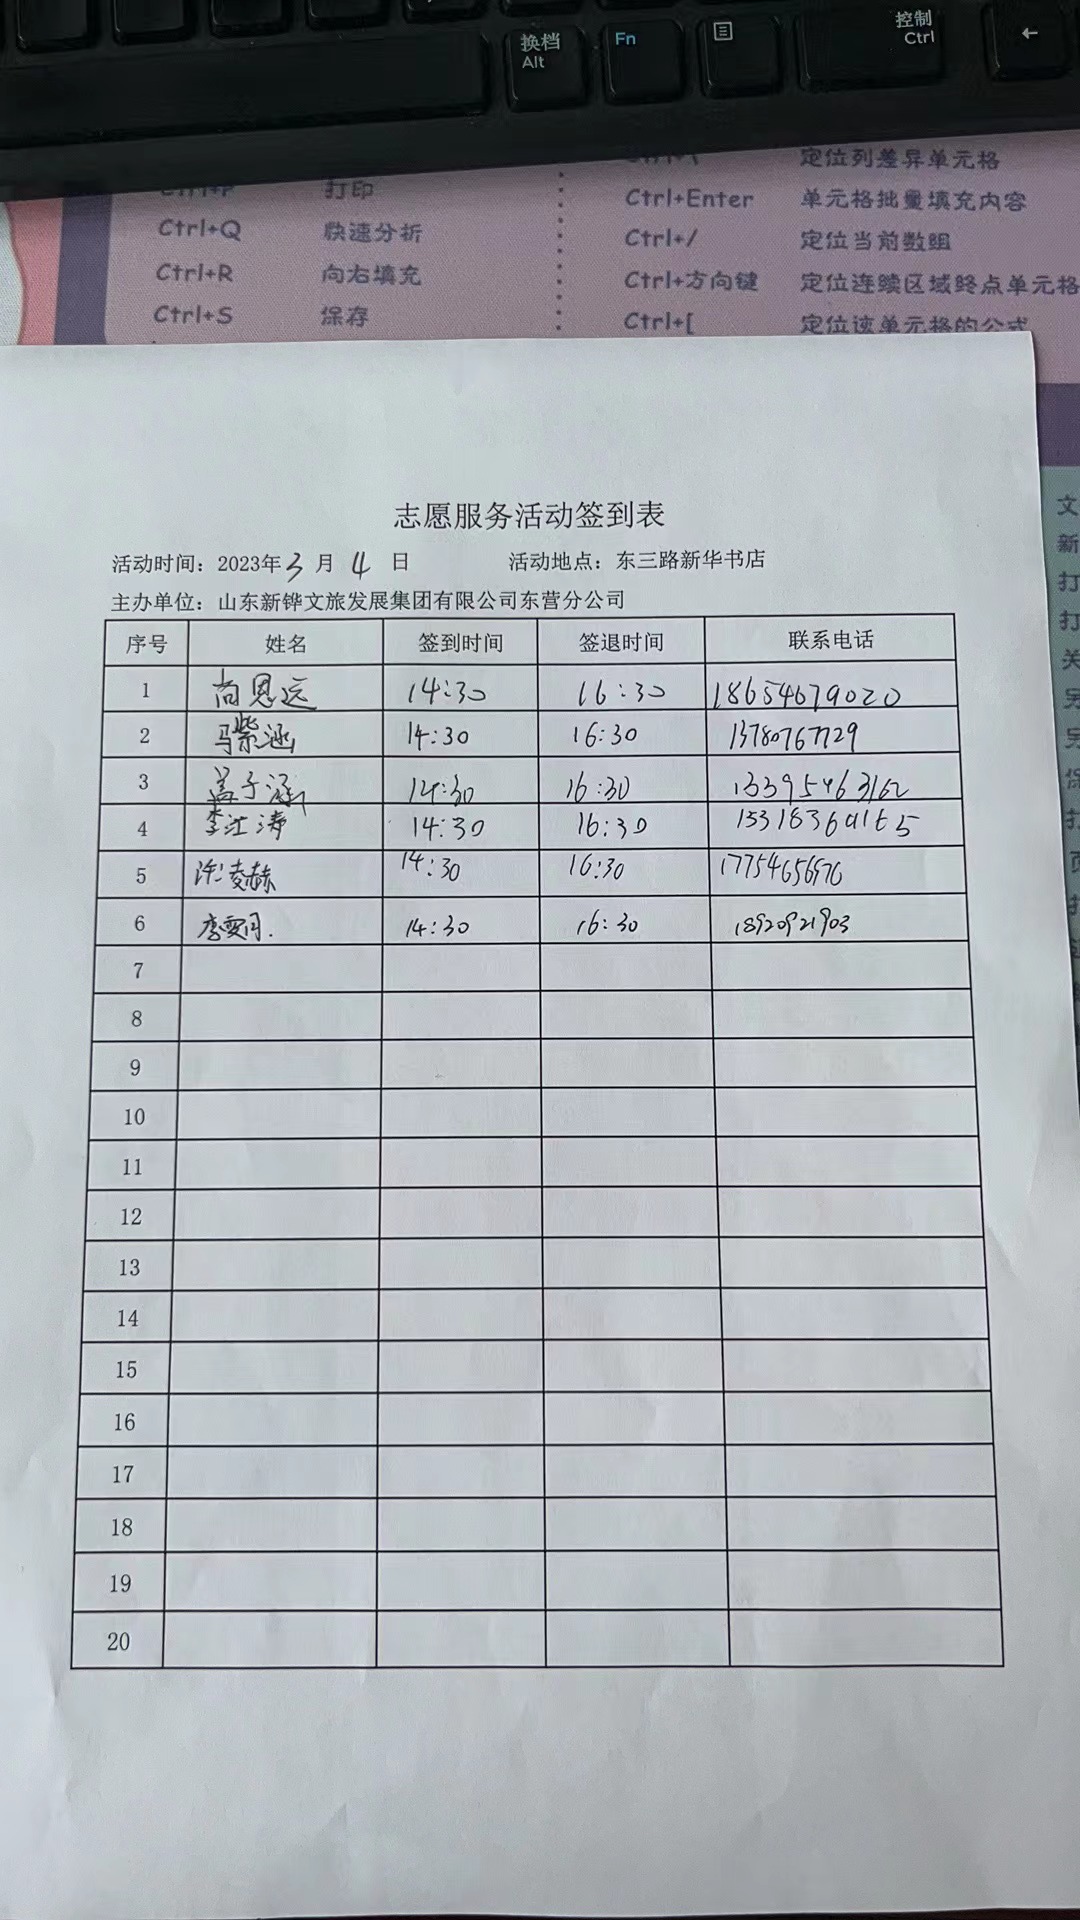 换档
Alt
Fn
控制
Ctrl
←
定位列差异单元格
打印
Ctrl+Enter 单元格批量填充内容
Ctrl+Q 快速分析
Ctrl+/ 定位当前数组
Ctrl+R 向右填充
Ctrl+方向键 定位连续区域终点单元格
Ctrl+S 保存
Ctrl+[ 定位该单元格的公式
志愿服务活动签到表
活动时间：2023年3月4日 活动地点：东三路新华书店
主办单位：山东新铧文旅发展集团有限公司东营分公司
序号 姓名 签到时间 签退时间 联系电话
1 尚恩运 14:30 16:30 18654679020
2 马紫涵 14:30 16:30 13780767729
3 盖子涵 14:30 16:30 13395463162
4 李江涛 14:30 16:30
5 许凌赫 14:30 16:30
6 李雯月. 14:30 16:30 18920921903
7
8
9
10
11
12
13
14
15
16
17
18
19
20
文
新
打
打
关